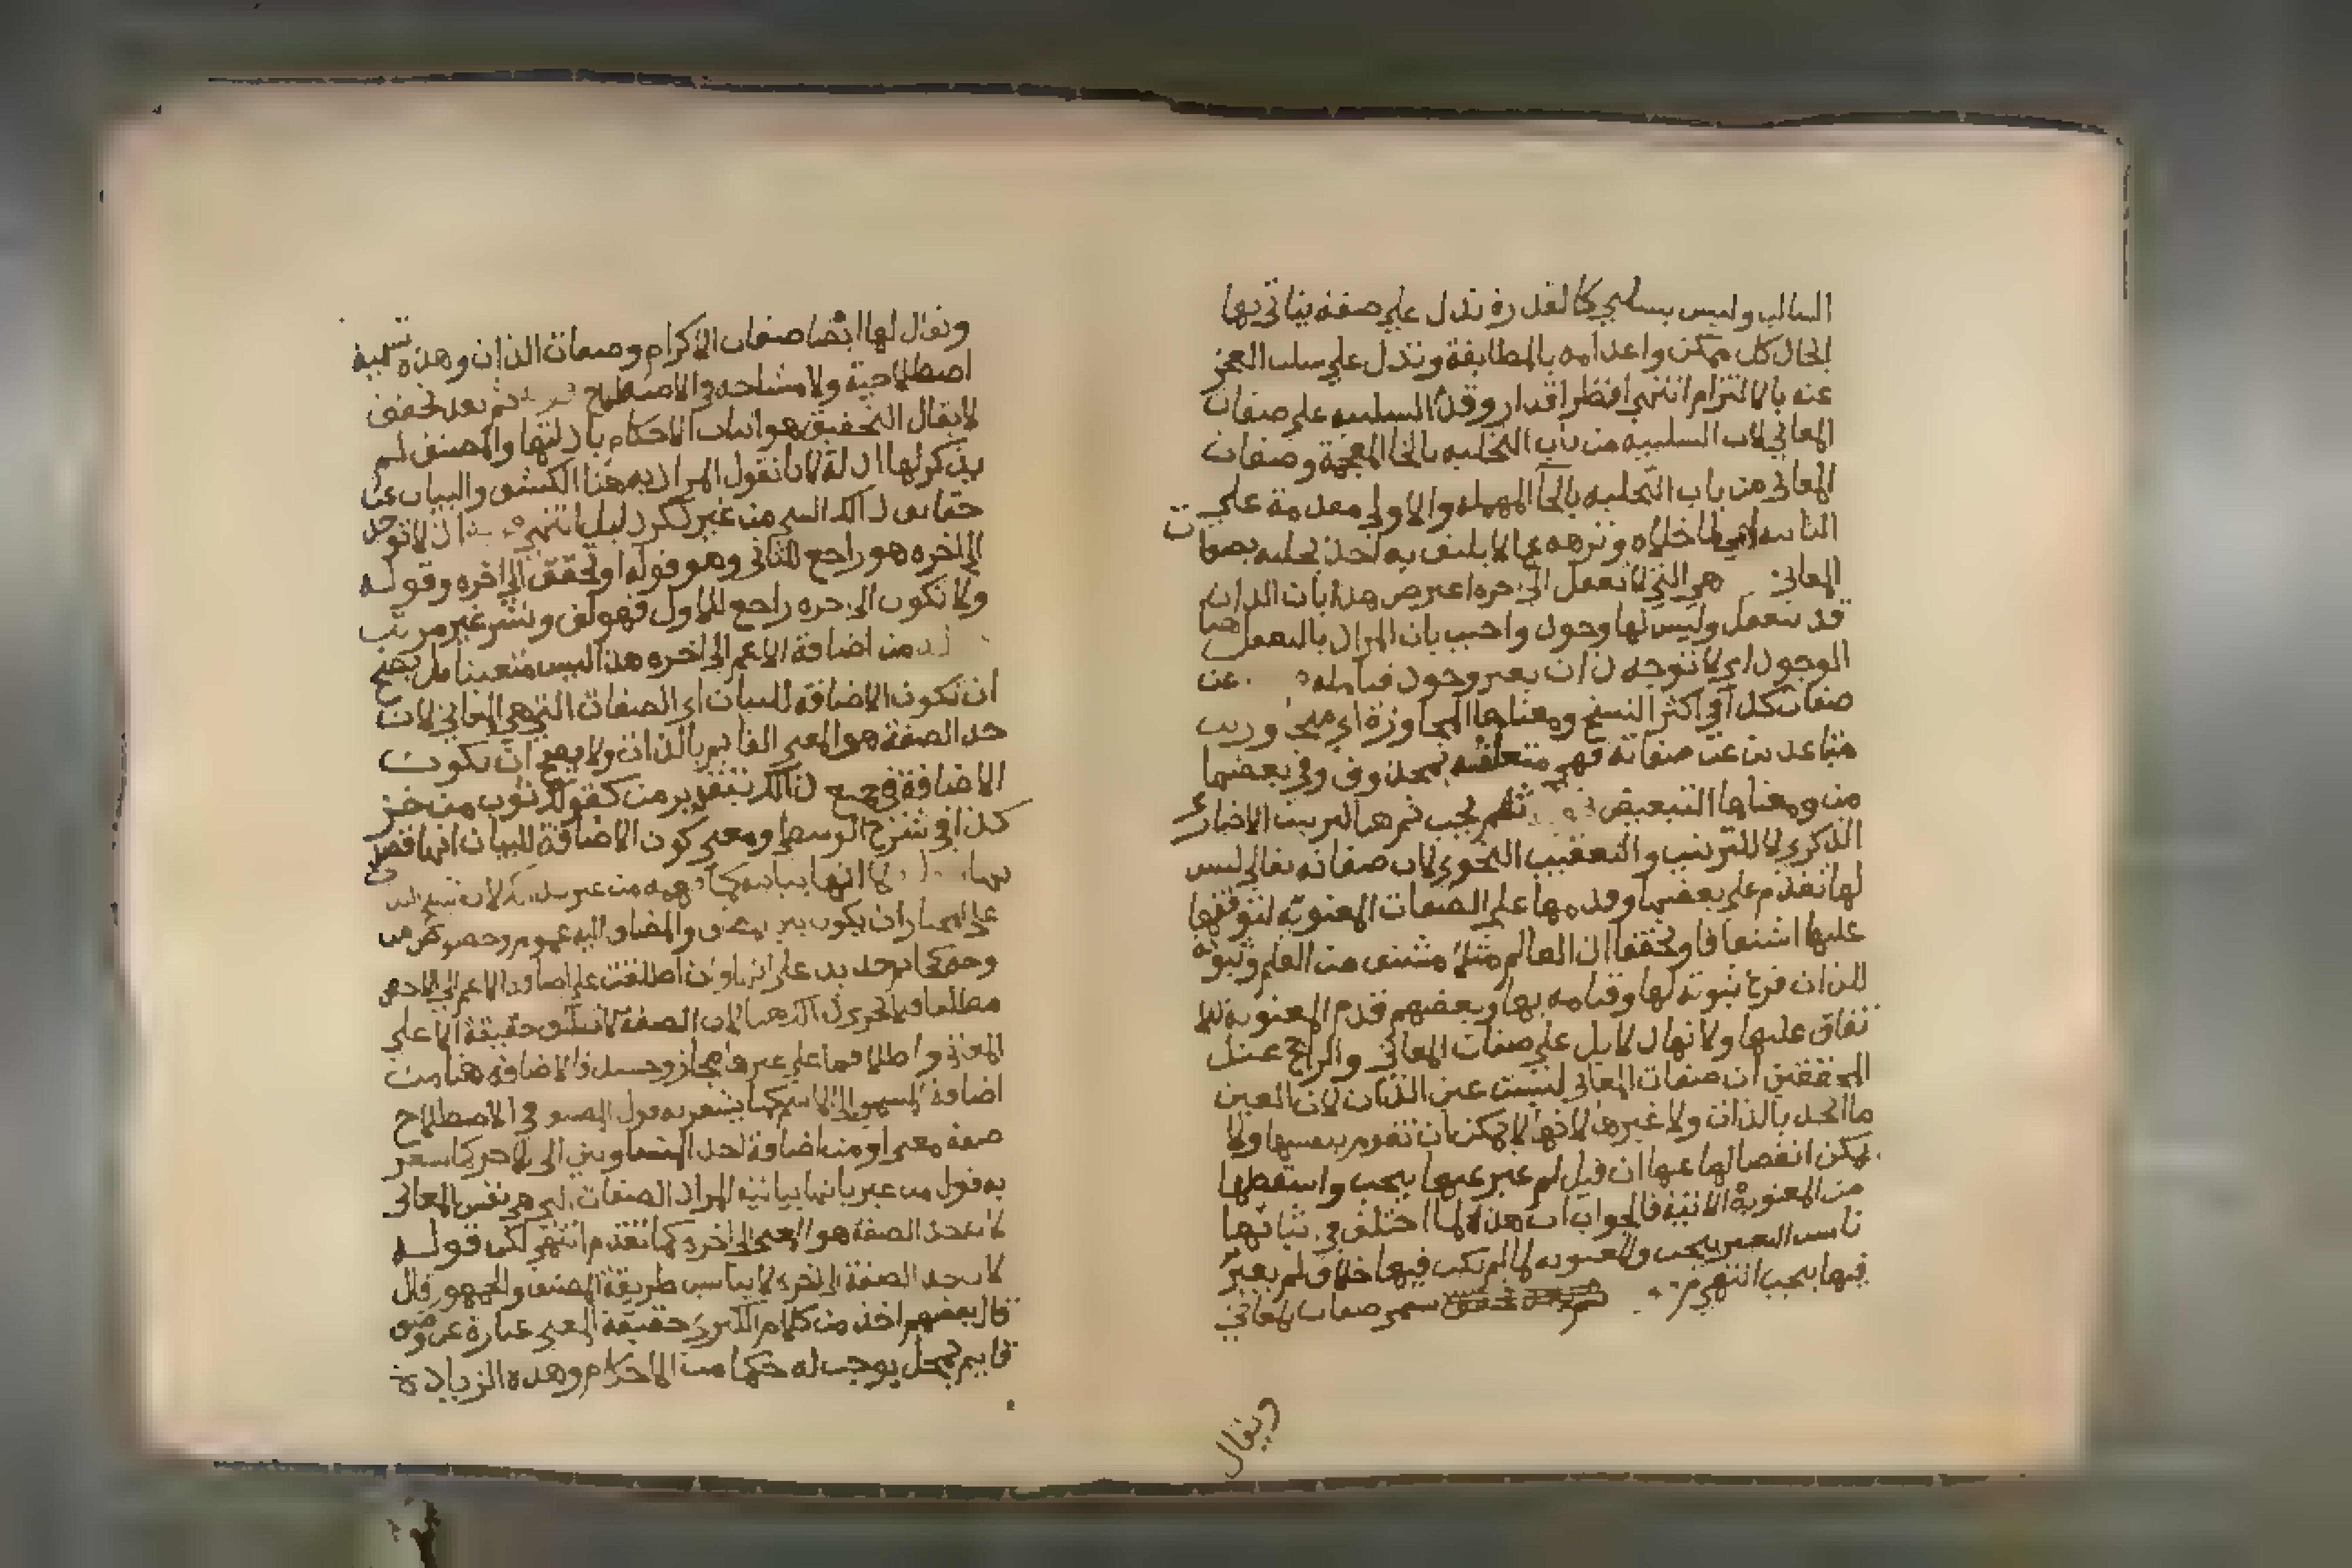 السالب وليس بسلبي كالقدرة تدل علي صفة يتاتي بها
ايجاد كل ممكن واعدامه بالمطابقة وتدل علي سلب العجز
عنه بالالتزام انتهي فظر اقدار وقدم السلبيه علي صفات
المعاني لان السلبيه من باب التخليه بالخا المعجمة وصفات
المعاني من باب التحليه بالحا المهمله والاولي مقدمة علي
الثانيه اي لما خلاه ونزهه عما لا يليق به اخذ يحليه بصفات
المعاني هي التي لا تعقل الي اخره اعترض هذا بان الذات
قد تتعقل وليس لها وجود واجيب بان المراد بالتعقل هنا
الوجود اي لا توجد ذات بغير وجود فتامله عن
صفات كل في اكثر النسخ ومعناها المجاوزة اي
متباعدين عن صفاته فهي متعلقه بمحذوف وفي بعضها
من ومعناها التبعيض ثم يجب ثم هنا لترتيب الاخبار
الذكري لا للترتيب والتعقيب النحوي لان صفاته تعالي ليس
لها تقدم علي بعضها وقدمها علي الصفات المعنويه لتوقفها
عليها اشتقاقا وتحققا اذ العالم مثلا مشتق من العلم وثبوته
للذات فرع ثبوته لها وقيامه بها وبعضهم قدم المعنويه للا
تفاق عليها ولانها دلايل علي صفات المعاني والراجح عند
المحققين ان صفات المعاني ليست عين الذات لان العين
ما اتحد بالذات ولا غيرها لانها لا يمكن ان تقوم بنفسها ولا
يمكن انفصالها عنها ان قيل لم عبر عنها بيجب واسقطها
من المعنوية الاتية فالجواب ان هذه لما اختلف في ثباتها
ناسب التعبير بيجب والمعنويه لما لم يكن فيها خلاف لم يعبر
فيها بيجب انتهي سمي صفات المعاني
ويقال
ويقال لها ايضا صفات الاكرام وصفات الذات وهذه تسمية
اصطلاحية ولا مشاحه في الاصطلاح ثم بعد تحقق
لا يقال التحقيق هو اثبات الاحكام بادلتها والمصنف لم
يذكر لها ادلة لانا نقول المراد به هنا الكشف والبيان عن
حقايق ذلك الشي من غير ذكر دليل انتهي اذ لا توجد
الي اخره هو راجع للثاني وهو قوله او تحقق الي اخره وقوله
ولا تكون الي اخره راجع للاول فهو لف ونشر غير مرتب
من اضافة الاعم الي اخره هذا ليس متعينا بل يصح
ان تكون الاضافة للبيان اي الصفات التي هي المعاني لان
حد الصفة هو المعني القايم بالذات ولا يصح ان تكون
الاضافة في جميع ذلك بتقدير من كقولك ثوب من خز
كذا في شرح الوسطي ومعني كون الاضافة للبيان انها قصد
بها انها بيانيه كما
علي المختار ان يكون بين المضاف والمضاف اليه عموم وخصوص من
وجه كخاتم حديد علي انها وان اطلقت علي اضافة الاعم الي الاخص
مطلقا فلا تجري ذلك هنا لان الصفة لا تطلق حقيقة الا علي
المعاني واطلاقها علي غيرها مجاز وحينئذ فالاضافه هنا من
اضافة المسمي الي الاسم كما يشعر به قول المص في الاصطلاح
صفة معني او من اضافة احد المتساويين الي الاخر كما يشعر
به قول من عبر بانها بيانية المراد الصفات التي هي نفس المعاني
لان حد الصفة هو المعني الي اخره كما تقدم انتهي لكن قوله
لان حد الصفة الي اخره لا يناسب طريقة المصنف والجمهور قال
قال بعضهم اخذ من كلام الكبري حقيقة المعني عبارة عن وصف
قايم بمحل يوجب له حكما من الاحكام وهذه الزيادة